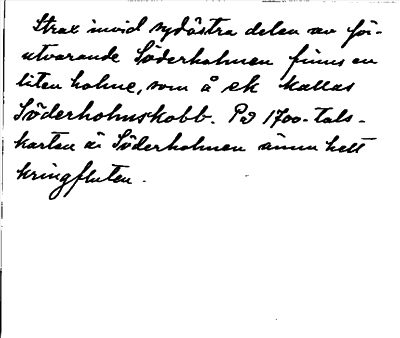 Strax invid sydöstra delen av för-
utvarande Söderholmen finns en
liten holme, som å ek kallas
Söderholmskobb. På 1700-tals-
kartan är Söderholmen ännu helt
kringfluten.